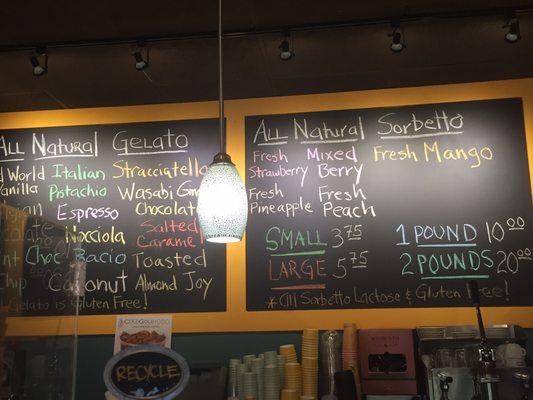 All Natural Gelato
World Italian Stracciatella
Vanilla Pistachio Wasabi
Espresso Chocolate
Nocciola Salted
Caramel
Choc Bacio Toasted
Coconut Almond Joy
Gelato is Gluten Free!
All Natural Sorbetto
Fresh Mixed Fresh Mango
Strawberry Berry
Fresh Fresh
Pineapple Peach
SMALL 3.75
LARGE 5.75
1 POUND 10.00
2 POUNDS 20.00
* All Sorbetto Lactose & Gluten Free!
RECYCLE